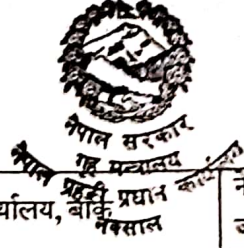 नेपाल सरकार
गृह मन्त्रालय
नेपाल प्रहरी प्रधान कार्यालय
र्यालय, बाँके
नक्साल